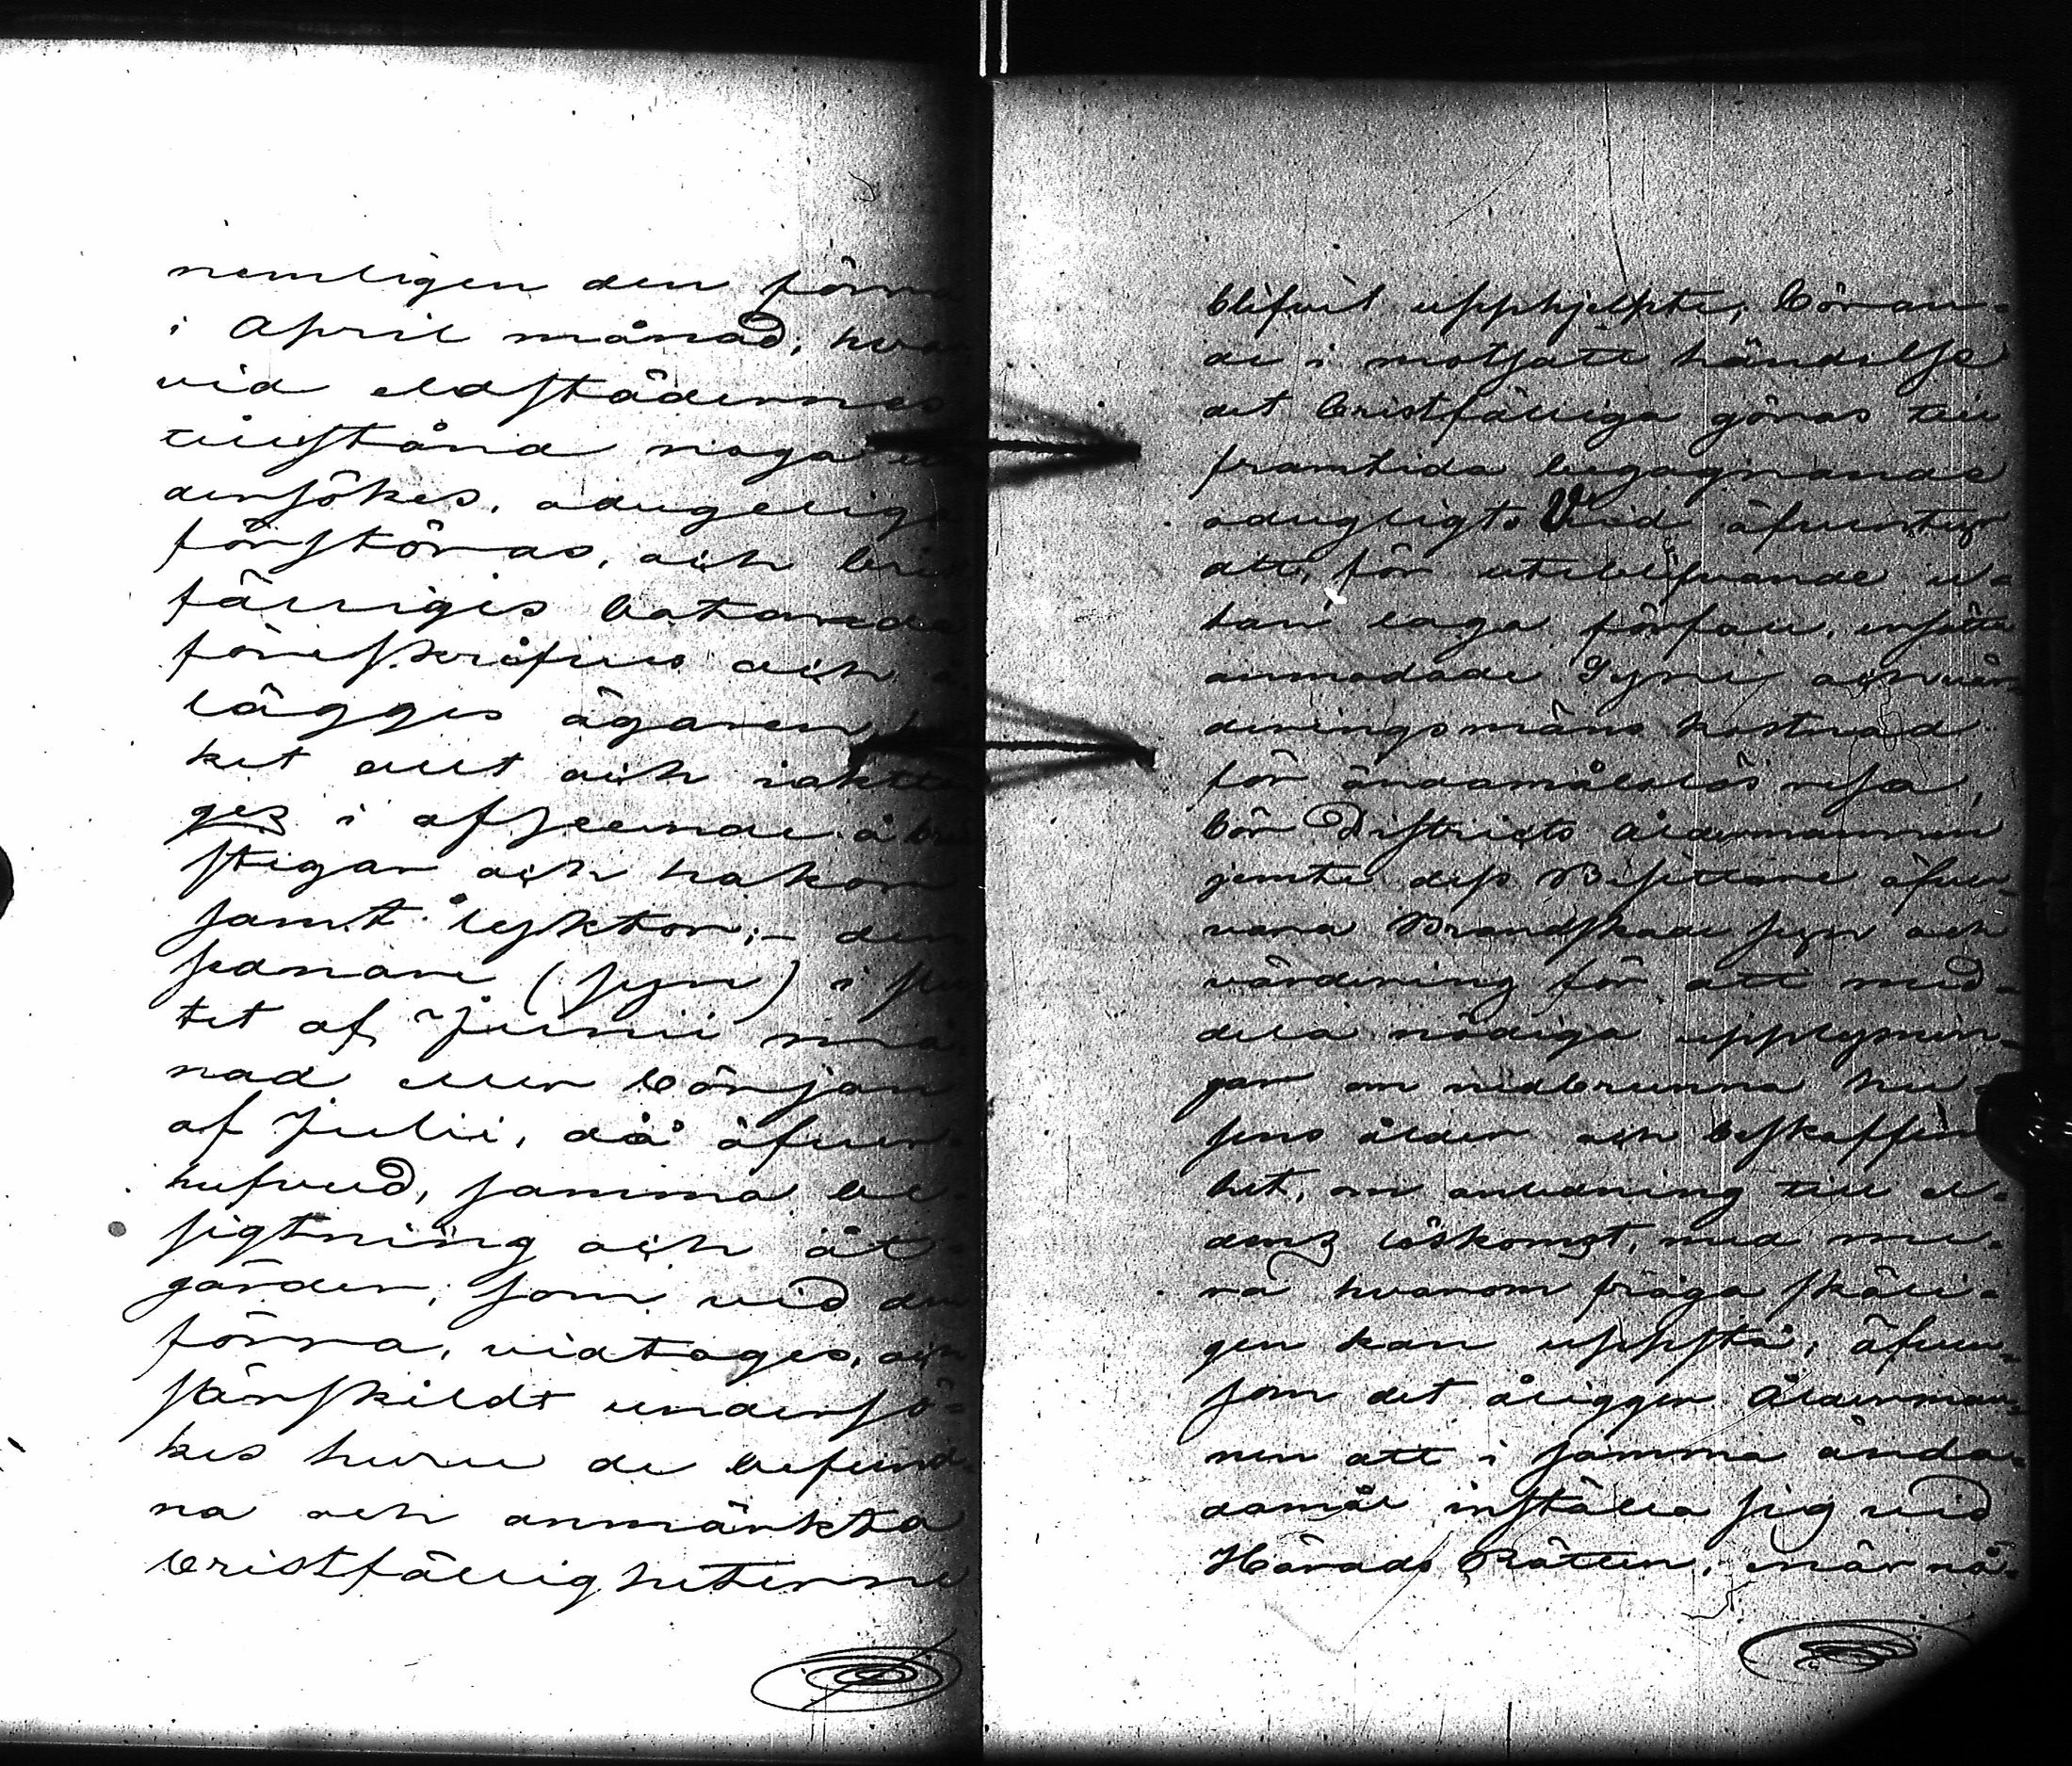 nemligen den förra
i April månad, hvar
vid eldstädernes
tillstånd noga un
dersökes, odugeliga
förstöras, och brist
fälliges botande
föreskrifves och å
lägges ägaren, hvil
ket allt och iaktta
ges i afseende å brand
stegar och hakar
samt lyktor; – den
sednare (syn) i slu
tet af Junii må
nad eller början
af Julii, då äfven
hufvud, samma be-
sigtning och åt-
gärder, som vid den
förra, vidtages, och
särskildt undersö-
kes huru de befund-
na och anmärkta
bristfälligheterne
blifvit upphjelpte, böran-
de i motsatt händelse
det bristfälliga göras till
framtida begagnande
odugligt. Vid äfventyr
att, för uteblifvande u-
tan laga förfall, ersätta
anmodade Syne och vär-
deringsmäns kostnad
för ändamålslös resa,
bör Districts Åldermannen
jemte dess Besittare öfver-
vara Brandskade syn och
värdering för att med-
dela nödiga upplysnin-
gar om nedbrunna hu-
sens ålder och beskaffen
het, om anledning till el-
dens löskomst, med me-
ra hvarom fråga skäli-
gen kan uppstå; äfven-
som det åligger Ålderman-
nen att i samma ända-
damål inställa sig vid
Härads Rätten, när nå-